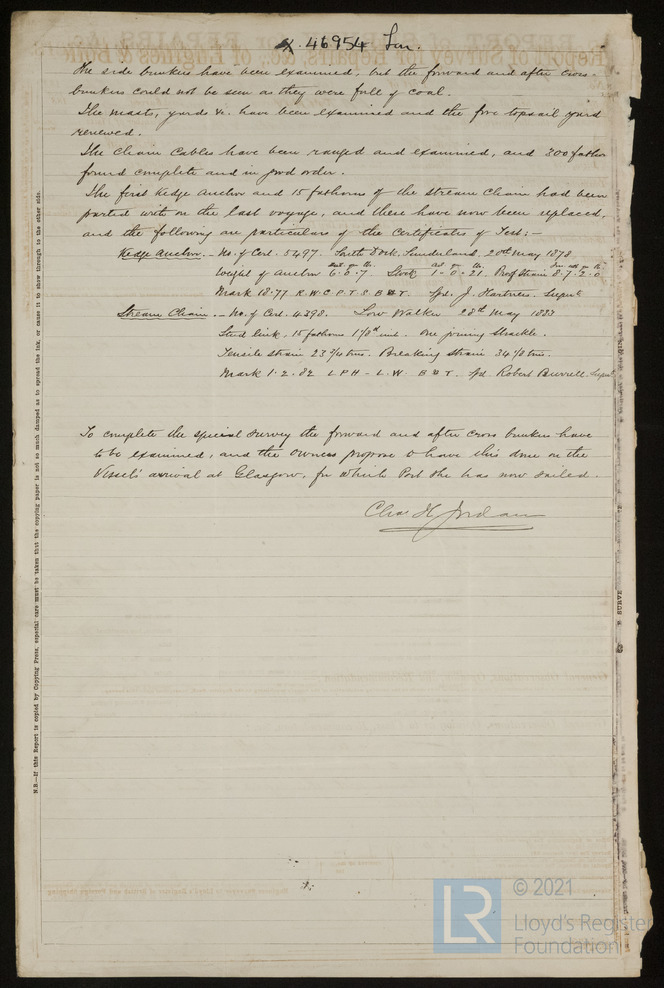 X. 46954 Lon.
The side bunkers have been examined, but the forward and after cross-
bunkers could not be seen as they were full of coal.
The masts, yards &c. have been examined and the fore topsail yard
renewed.
The Chain Cables have been ranged and examined, and 300 fathoms
found complete and in good order.
The first Kedge Anchor and 15 fathoms of the Stream Chain had been
parted with on the last voyage, and these have now been replaced,
and the following are particulars of the Certificates of Test:-
Kedge Anchor. - No. of Cert. 5497. South Dock, Sunderland, 20th May 1878
Weight of Anchor 6.0.7 Stock 1-0-21. Proof Strain 8.7.2.0
Mark 18.77 R.W.C.P.T.S. B&T. Sgd. J. Hartness, Supt
Stream Chain. - No. of Cert. 4398. Low Walker 28th May 1883
Stud link, 15 fathoms 1 1/8" one joining shackle.
Tensile strain 23 tons. Breaking strain 34 tons.
Mark 1.2.82 L.P.H - L.W. B&T. Sgd. Robert Burrell, Supt
To complete the special survey the forward and after cross bunkers have
to be examined, and the Owners propose to have this done on the
Vessel's arrival at Glasgow, for which Port she has now sailed.
Chas. H. Jordan
N.B.—If this Report is copied by Copying Press, especial care must be taken that the copying paper is not so much damped as to spread the ink, or cause it to show through to the other side.
LR
© 2021
Lloyd's Register
Foundation